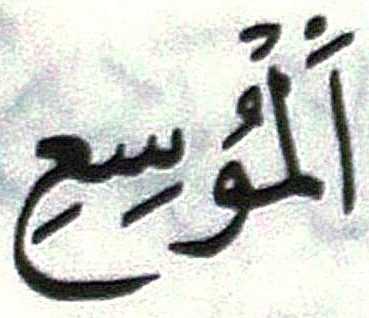 اَلْمُوسِعِ